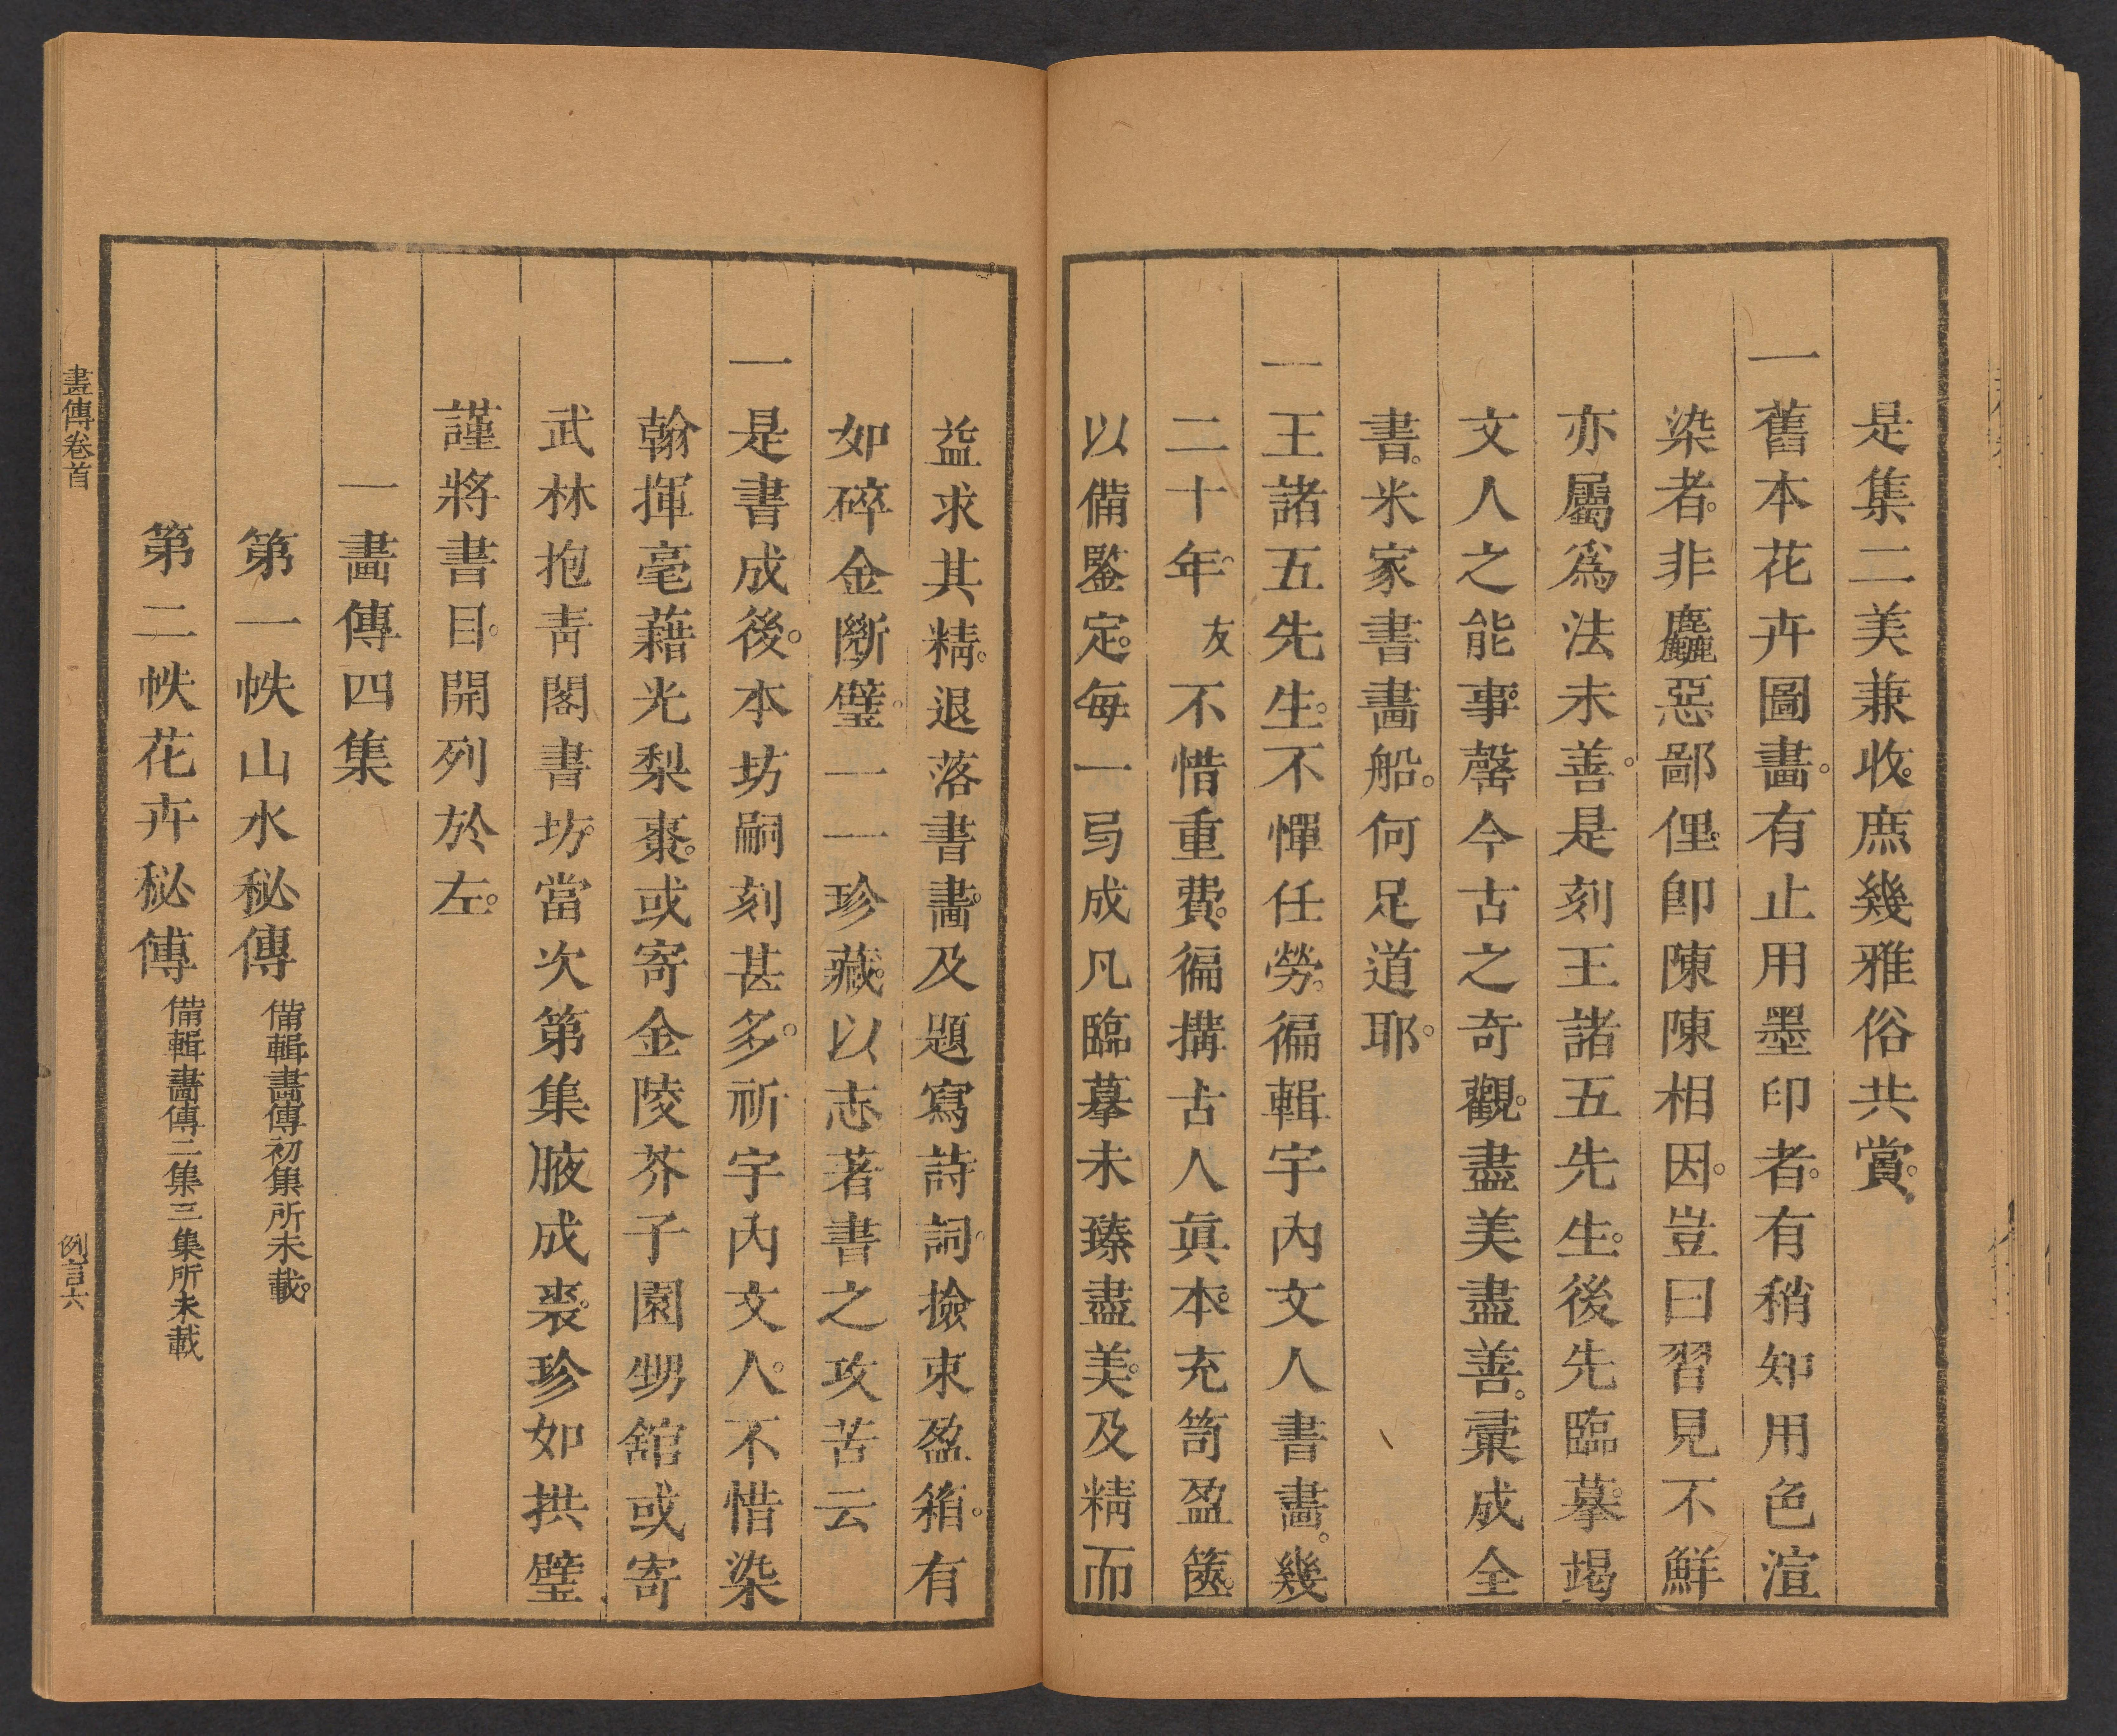 是集二美兼收。庶幾雅俗共賞。
一舊本花卉圖畵。有止用墨印者。有稍知用色渲
染者。非麤惡鄙俚。卽陳陳相因。豈曰習見不鮮
亦屬爲法未善。是刻王諸五先生。後先臨摹。竭
文人之能事。罄今古之奇觀。盡美盡善。彙成全
書。米家書畵船。何足道耶。
一王諸五先生。不憚任勞。徧輯宇內文人書畵。幾
二十年。友不惜重費。徧搆古人眞本。充笥盈篋。
以備鑒定。每一弓成凡臨摹未臻盡美。及精而
益求其精。退落書畵。及題寫詩詞。撿束盈箱。有
如碎金斷璧。一一珍藏。以志著書之攻苦云
一是書成後。本坊嗣刻甚多。祈宇內文人。不惜染
翰揮毫藉光梨棗。或寄金陵芥子園甥舘或寄
武林抱靑閣書坊。當次第集腋成裘。珍如拱璧
謹將書目。開列於左。
一畵傳四集
第一帙山水秘傳 備輯畵傳初集所未載。
第二帙花卉秘傳 備輯畵傳二集三集所未載
畫傳卷首 例言六